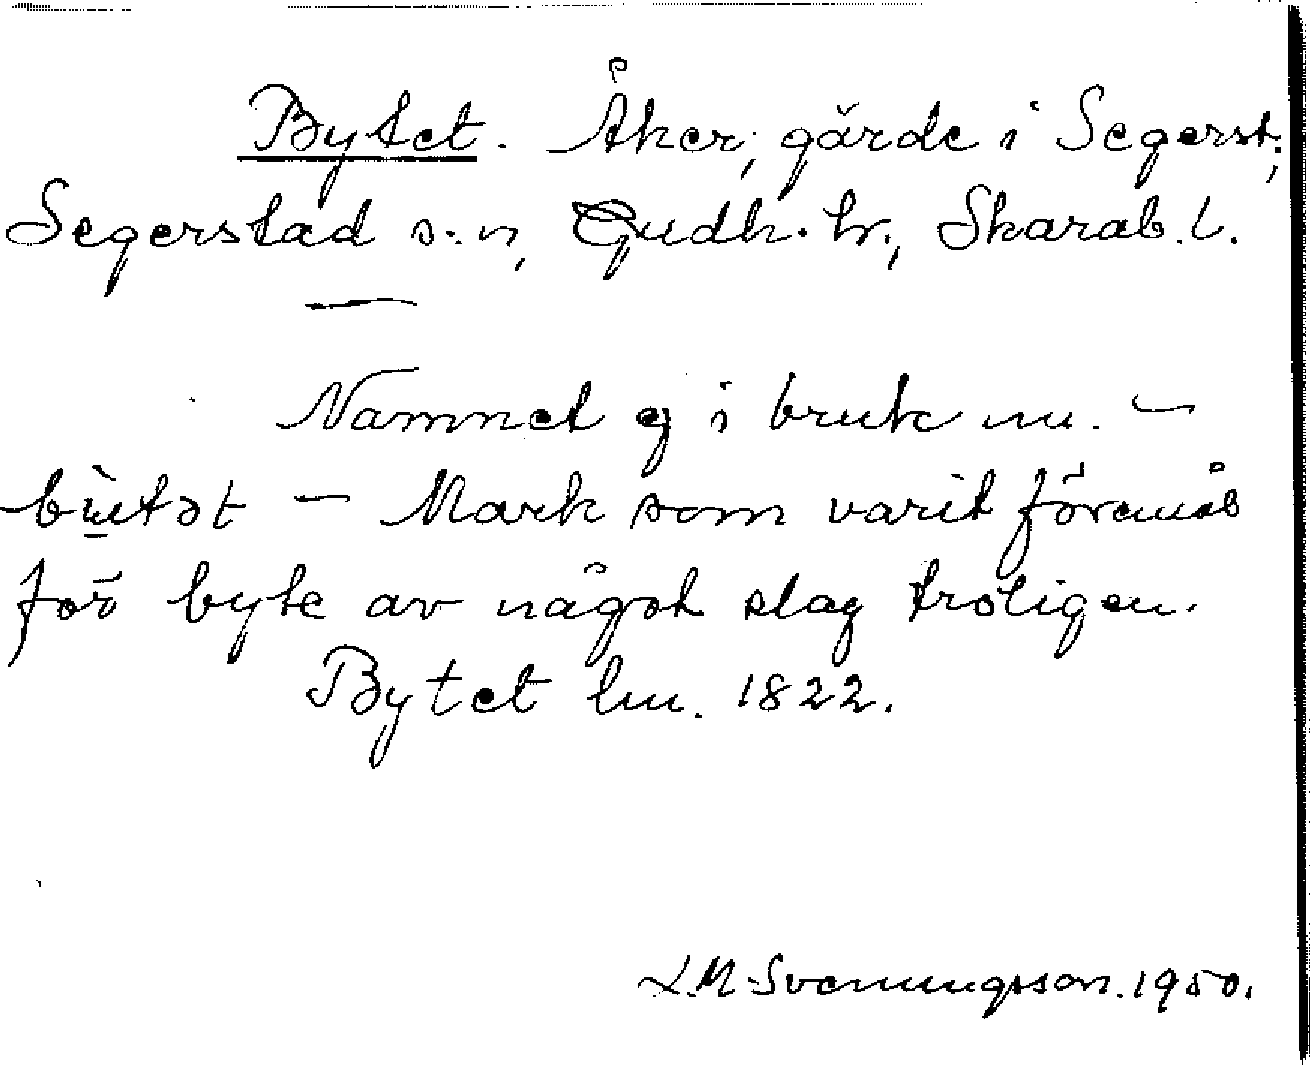 Bytet. Åker, gärde i Segerst.,
Segerstad s:n, Gudh. hr., Skarab. l.
Namnet ej i bruk nu. —
— Mark som varit föremål
för byte av något slag troligen.
Bytet lm. 1822.
L.M. Svenungsson. 1950.